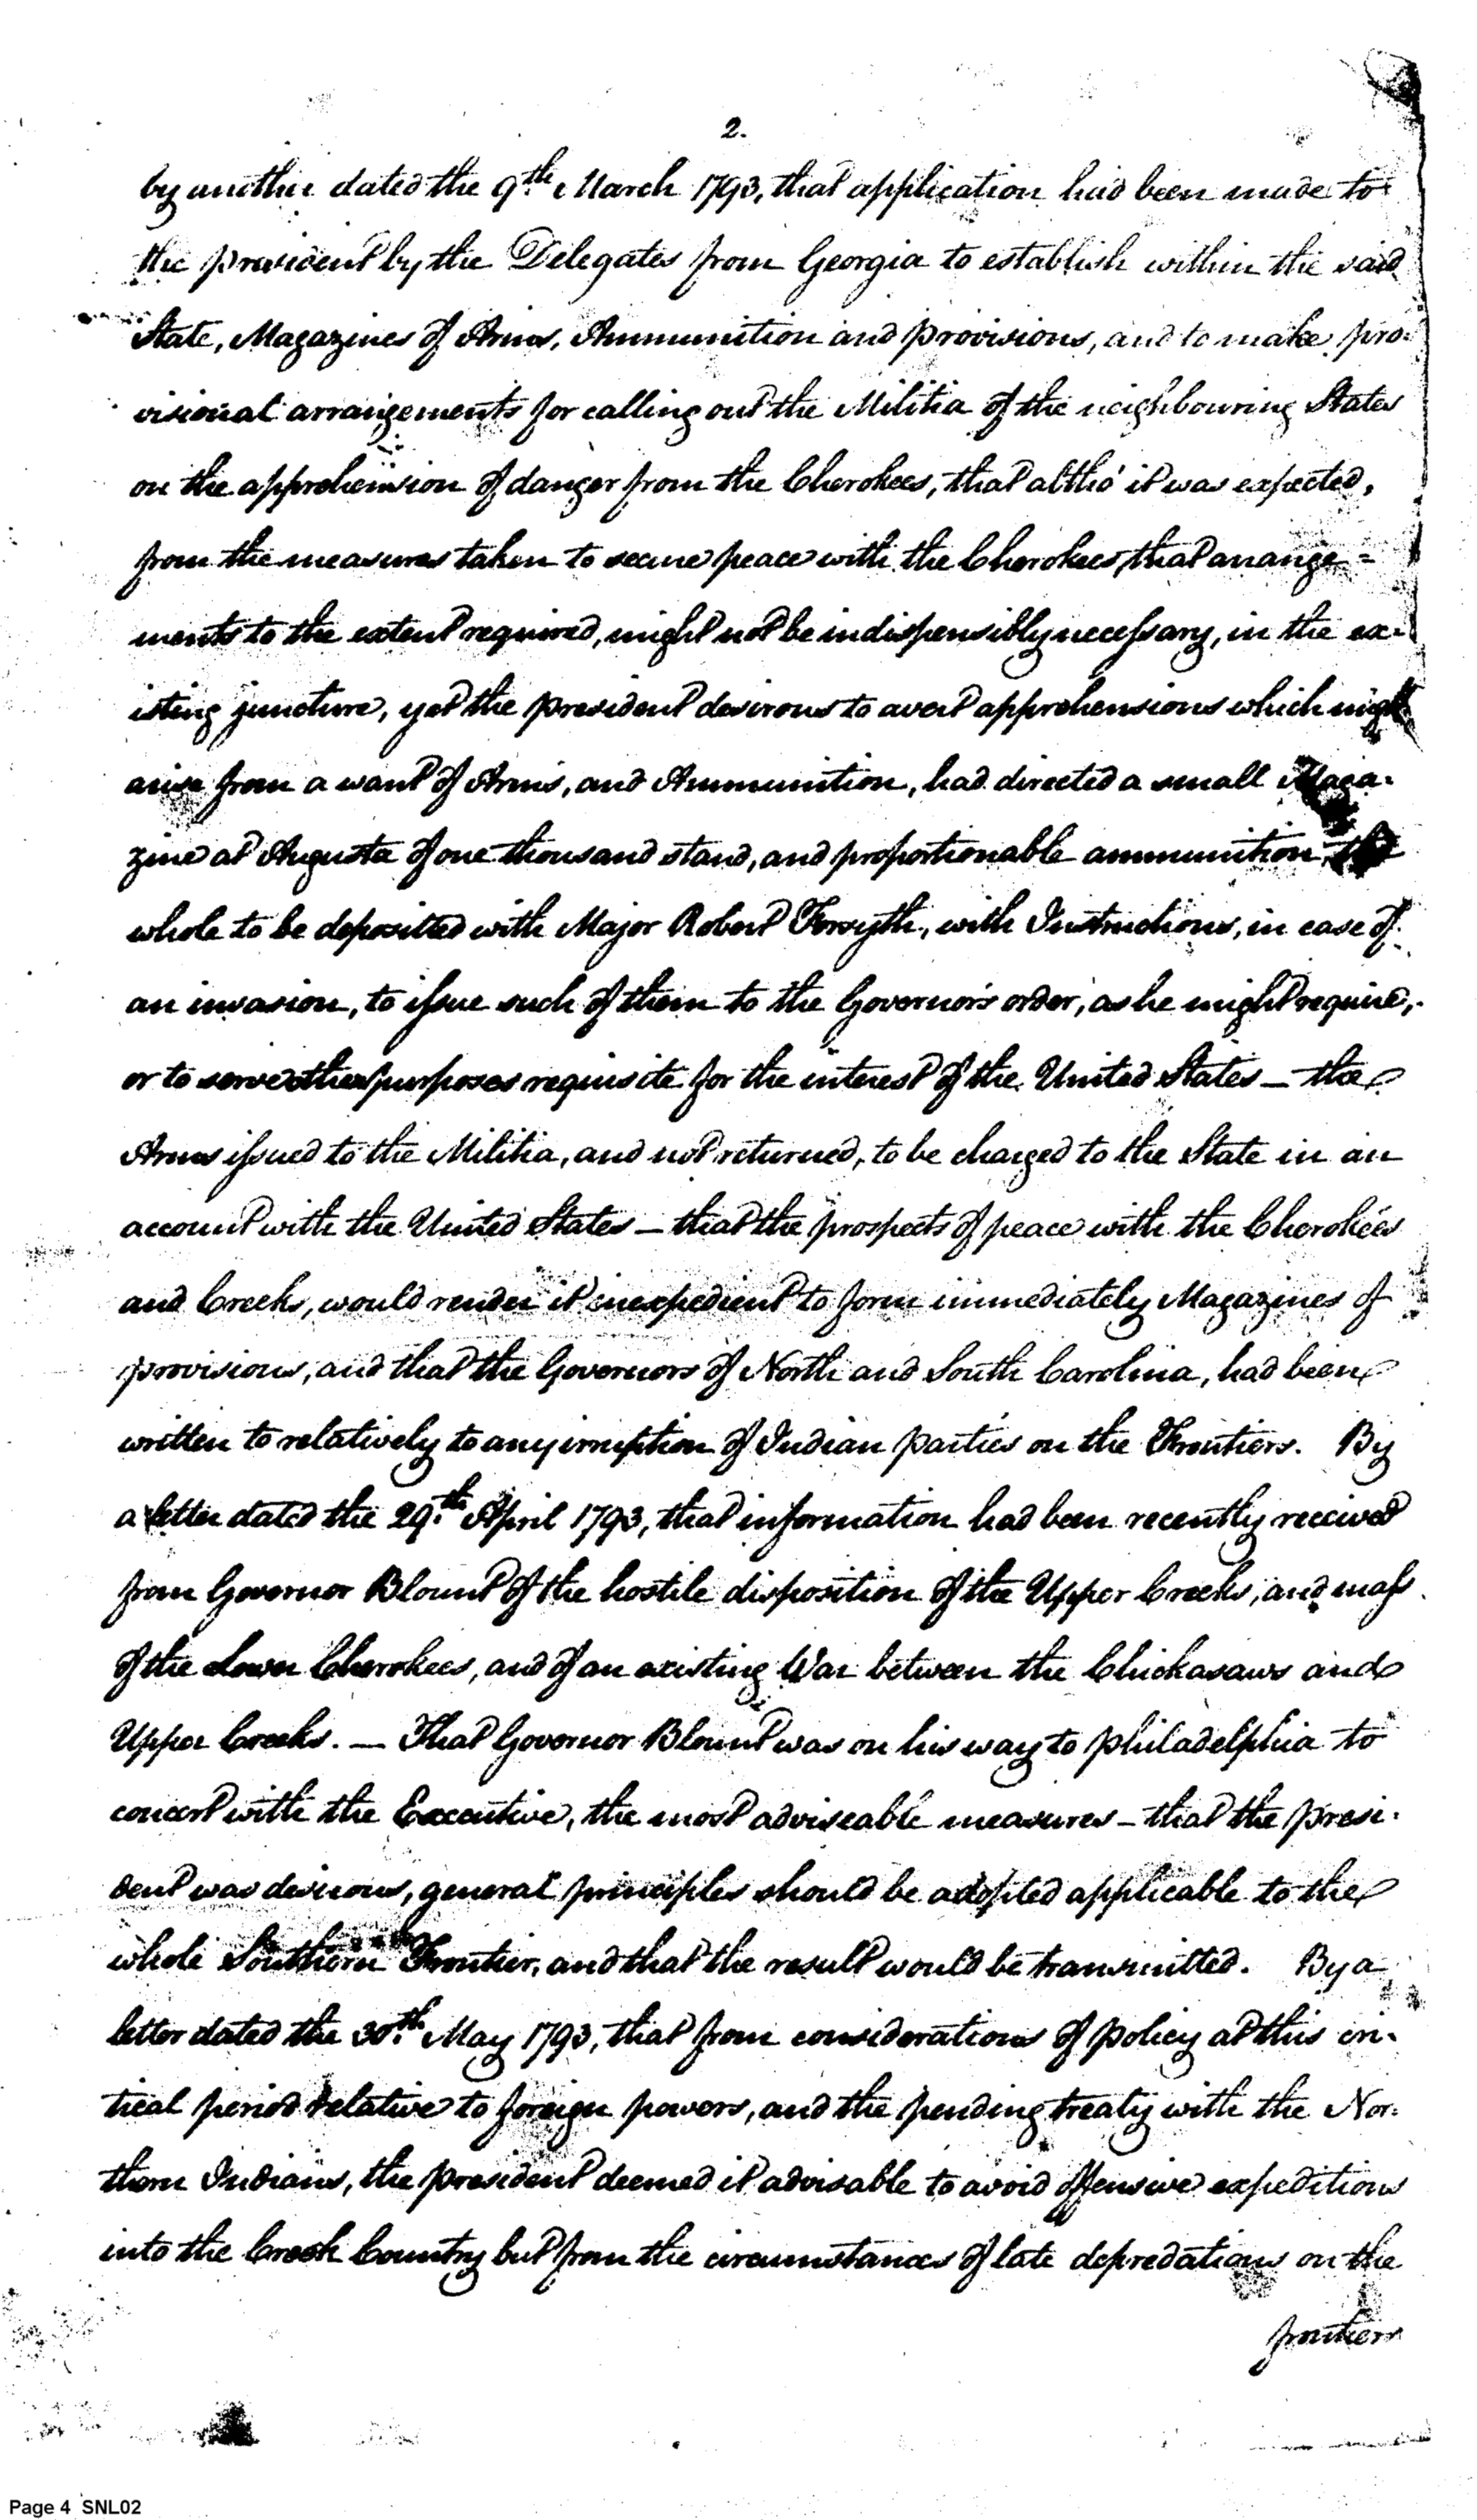 2.
by another dated the 9th. March 1793, that application had been made to
the president by the Delegates from Georgia to establish within the said
State, Magazines of Arms, Ammunition and provisions, and to make pro-
visional arrangements for calling out the Militia of the neighbouring States
on the apprehension of danger from the Cherokees, that altho' it was expected,
from the measures taken to secure peace with the Cherokees, that arrange=
ments to the extent required, might not be indispensibly necessary, in the ex-
isting juncture, yet the president desirous to avert apprehensions which might
arise from a want of Arms, and Ammunition, had directed a small Maga-
zine at Augusta of one thousand stand, and proportionable ammunition, the
whole to be deposited with Major Robert Forsyth, with Instructions, in case of
an invasion, to issue such of them to the Governor's order, as he might require,
or to serve other purposes requisite for the interest of the United States — the
Arms issued to the Militia, and not returned, to be charged to the State in an
account with the United States — that the prospects of peace with the Cherokees
and Creeks, would render it inexpedient to form immediately Magazines of
provisions, and that the Governors of North and South Carolina, had been
written to relatively to any irruption of Indian parties on the Frontiers. By
a letter dated the 29th. April 1793, that information had been recently received
from Governor Blount of the hostile disposition of the Upper Creeks, and mass
of the Lower Cherokees, and of an existing War between the Chickasaws and
Upper Creeks. — That Governor Blount was on his way to philadelphia to
concert with the Executive, the most adviseable measures — that the presi-
dent was desirous, general principles should be adopted applicable to the
whole Southern Frontier, and that the result would be transmitted. By a
letter dated the 30th. May 1793, that from considerations of policy at this cri-
tical period relative to foreign powers, and the pending treaty with the Nor-
thern Indians, the president deemed it advisable to avoid offensive expeditions
into the Creek Country but from the circumstances of late depredations on the
frontiers
Page 4 SNL02